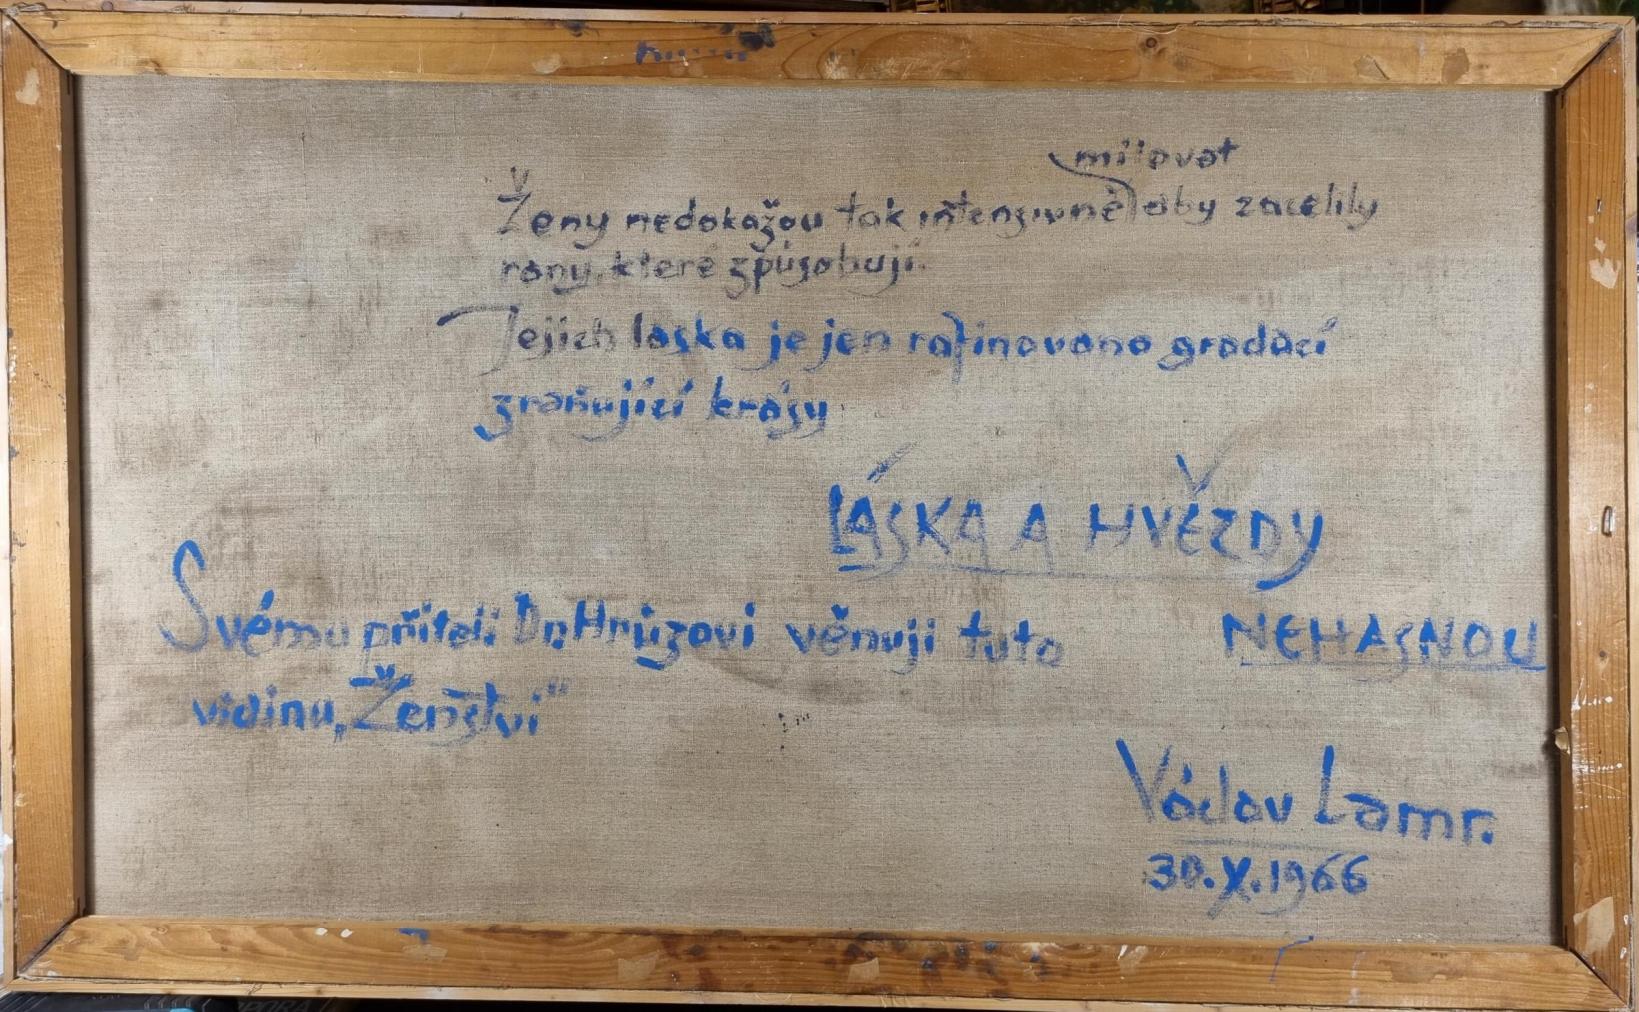 milovat
Ženy nedokažou tak intenzivně aby zacelily
rany, které způsobují.
Jejich laska je jen rafinovano gradací
zraňující krásy
LÁSKA A HVĚZDY
Svému příteli Dr. Hrůzovi věnuji tuto
NEHASNOU
vidinu „Ženství"
Václav Lamr.
30.X.1966